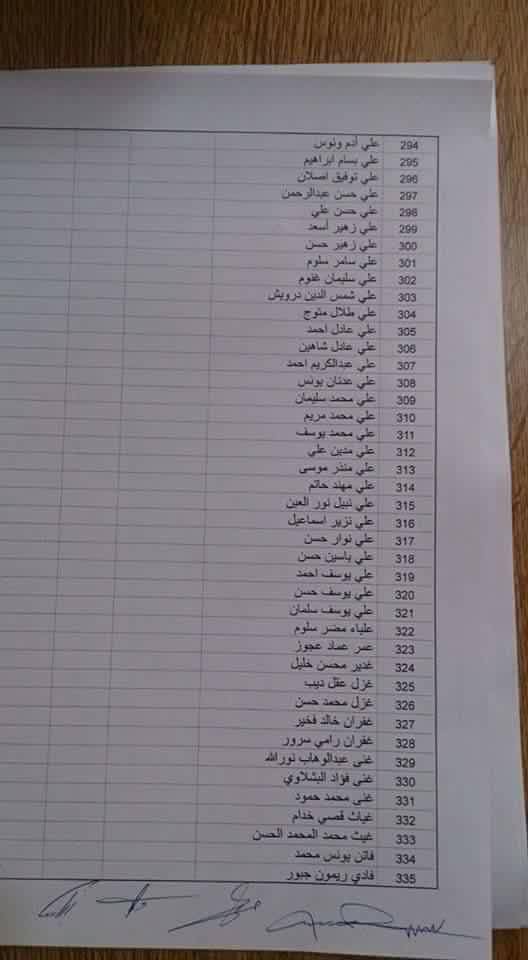 294 علي آدم ونوس
295 علي بسام ابراهيم
296 علي توفيق اصلان
297 علي حسن عبدالرحمن
298 علي حسن علي
299 علي زهير أسعد
300 علي زهير حسن
301 علي سامر سلوم
302 علي سليمان غنوم
303 علي شمس الدين درويش
304 علي طلال متوج
305 علي عادل احمد
306 علي عادل شاهين
307 علي عبدالكريم احمد
308 علي عدنان يونس
309 علي محمد سليمان
310 علي محمد مريم
311 علي محمد يوسف
312 علي مدين علي
313 علي منذر موسى
314 علي مهند حاتم
315 علي نبيل نور العين
316 علي نزير اسماعيل
317 علي نوار حسن
318 علي ياسين حسن
319 علي يوسف احمد
320 علي يوسف حسن
321 علي يوسف سلمان
322 علياء مضر سلوم
323 عمر عماد عجوز
324 غدير محسن خليل
325 غزل عقل ديب
326 غزل محمد حسن
327 غفران خالد فخير
328 غفران رامي سرور
329 غنى عبدالوهاب نورالله
330 غنى فؤاد البشلاوي
331 غنى محمد حمود
332 غياث قصي خدام
333 غيث محمد المحمد الحسن
334 فاتن يونس محمد
335 فادي ريمون جبور